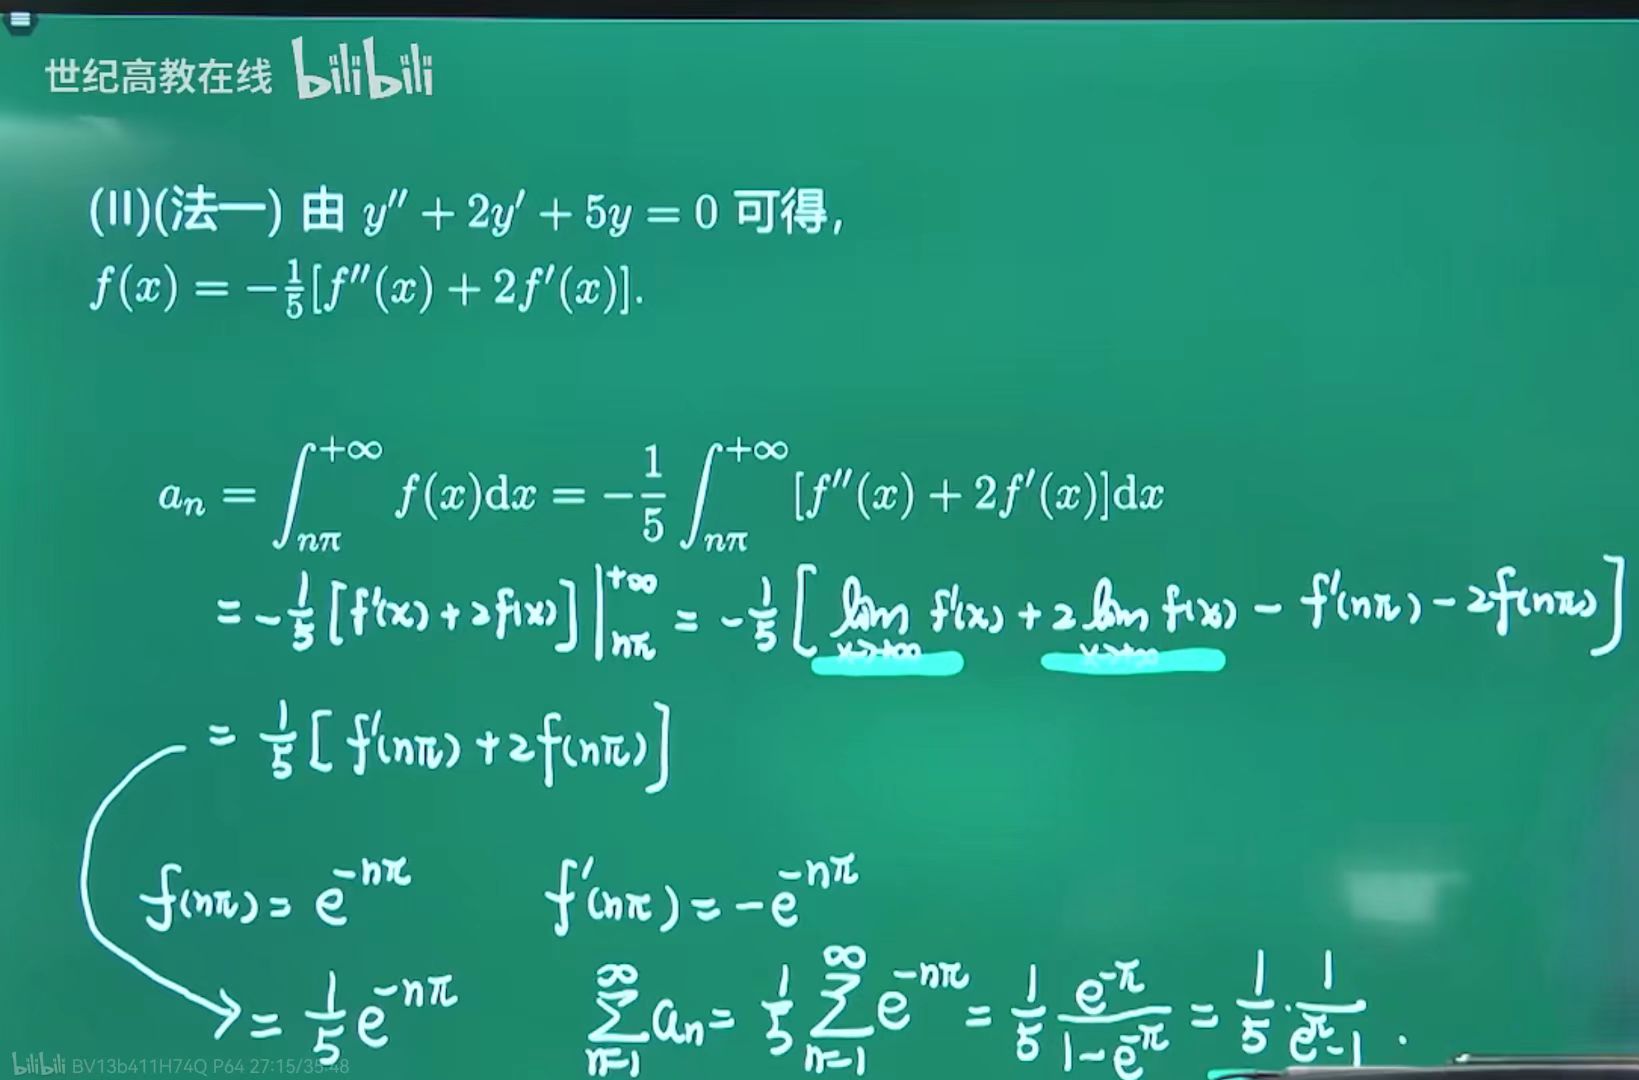 世纪高教在线 bilibili
(II)(法一) 由 y″ + 2y′ + 5y = 0 可得,
f(x) = −1/5[f″(x) + 2f′(x)].
aₙ = ∫_{nπ}^{+∞} f(x)dx = −1/5 ∫_{nπ}^{+∞} [f″(x) + 2f′(x)]dx
= −1/5 [f′(x) + 2f(x)] |_{nπ}^{+∞} = −1/5 [lim_{x→+∞} f′(x) + 2 lim_{x→+∞} f(x) − f′(nπ) − 2f(nπ)]
= 1/5 [f′(nπ) + 2f(nπ)]
f(nπ) = e^{−nπ} f′(nπ) = −e^{−nπ}
= 1/5 e^{−nπ} ∑_{n=1}^{∞} aₙ = 1/5 ∑_{n=1}^{∞} e^{−nπ} = 1/5 e^{−π}/(1−e^{−π}) = 1/5 · 1/(e^{π}−1) .
bilibili BV13b411H74Q P64 27:15/35:48